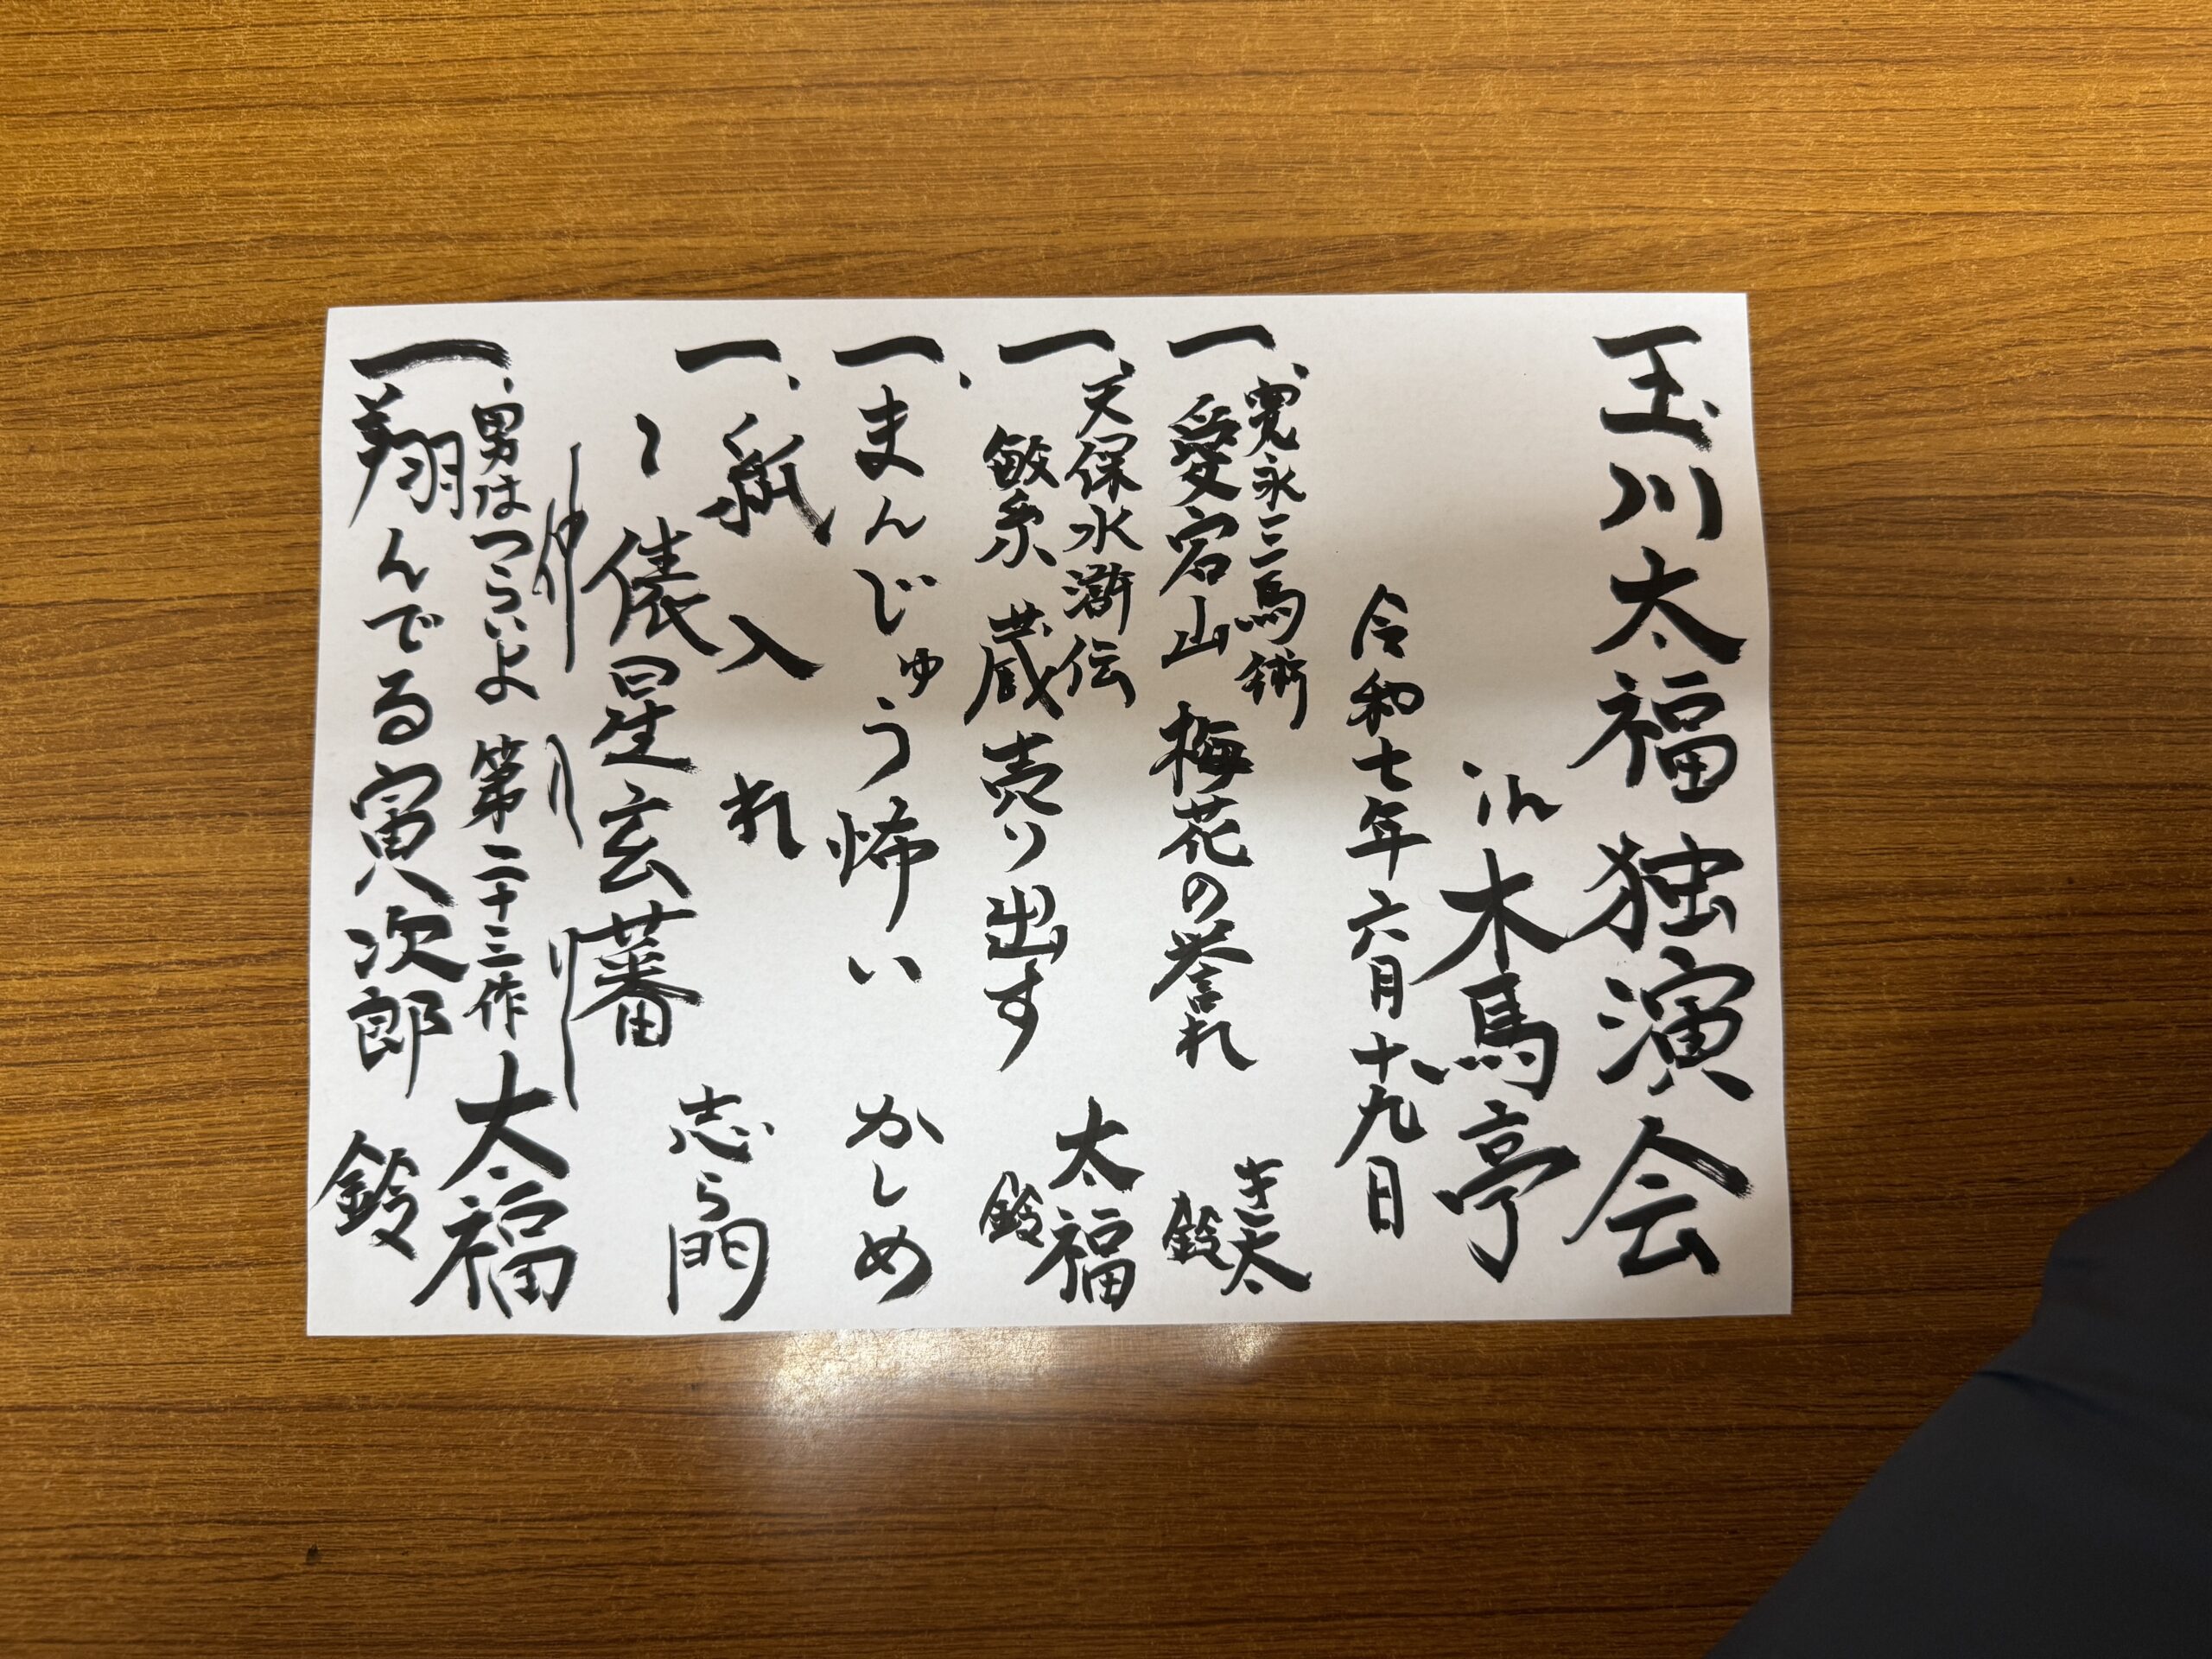 玉川太福 独演会
in 木馬亭
令和七年六月十九日
一、寛永三馬術
愛宕山 梅花の誉れ
き太
鈴
一、天保水滸伝
繁蔵売り出す
太福
鈴
一、まんじゅう怖い
かしめ
一、紙入れ
〜俵星玄蕃
志ら門
仲入り
一、男はつらいよ 第二十三作
翔んでる寅次郎
太福
鈴